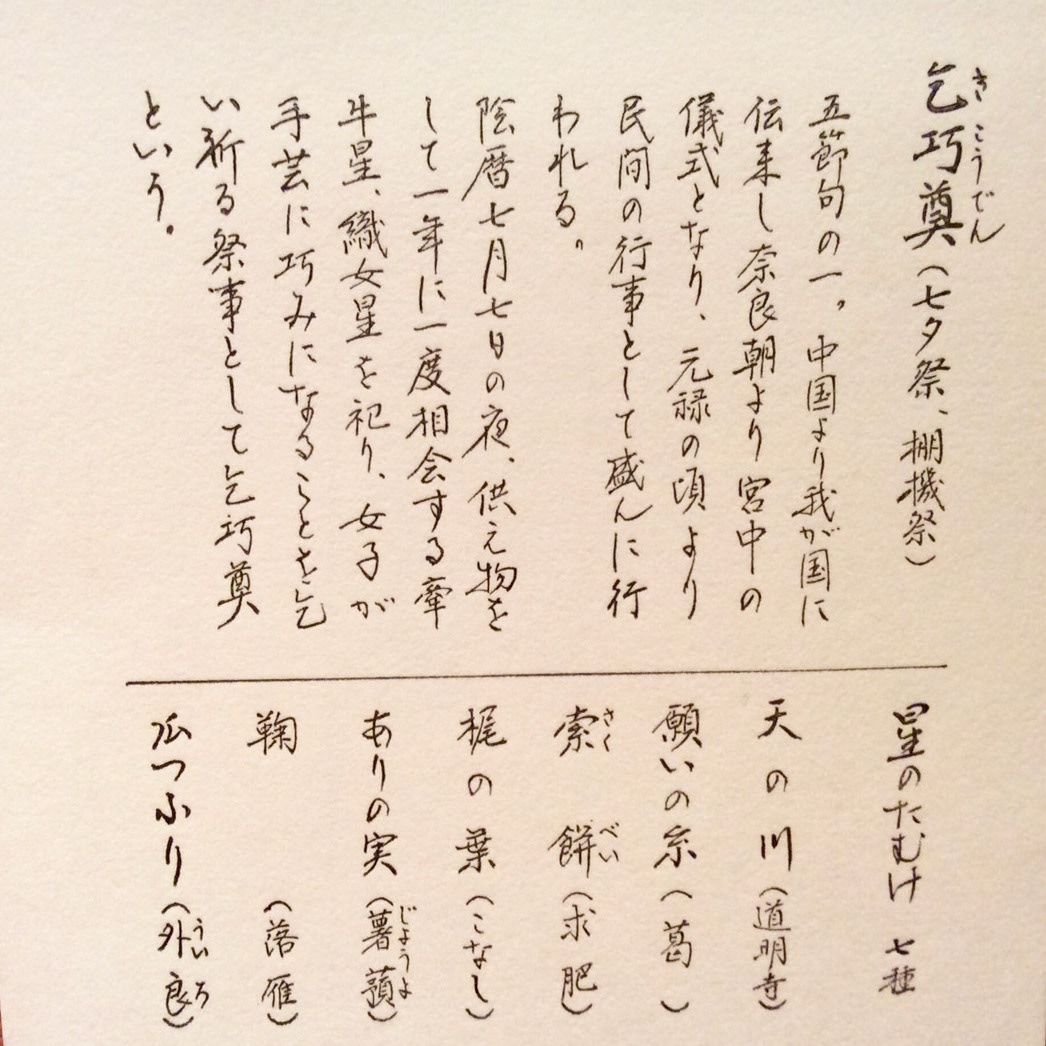 乞巧奠（七夕祭、棚機祭）
きこうでん
五節句の一。中国より我が国に
伝来し奈良朝より宮中の
儀式となり、元禄の頃より
民間の行事として盛んに行
われる。
陰暦七月七日の夜、供え物を
して一年に一度相会する牽
牛星、織女星を祀り、女子が
手芸に巧みになることを乞
い祈る祭事として乞巧奠
という。
星のたむけ 七種
天の川（道明寺）
願いの糸（葛）
索餅（求肥）
さくべい
梶の葉（こなし）
ありの実（薯蕷）
じょうよ
鞠（落雁）
瓜つふり（外良）
ういろ